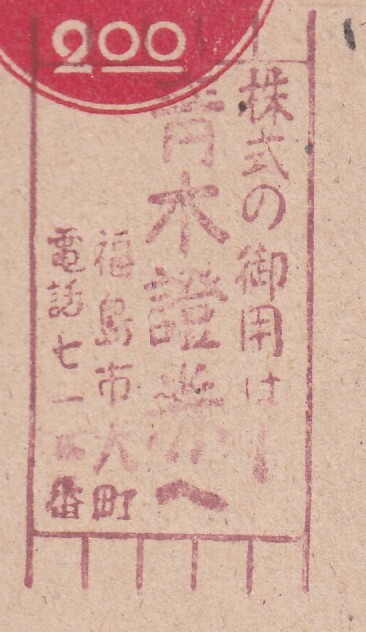 2.00
株式の御用は
青木證券へ
福島市大町
電話七一五番